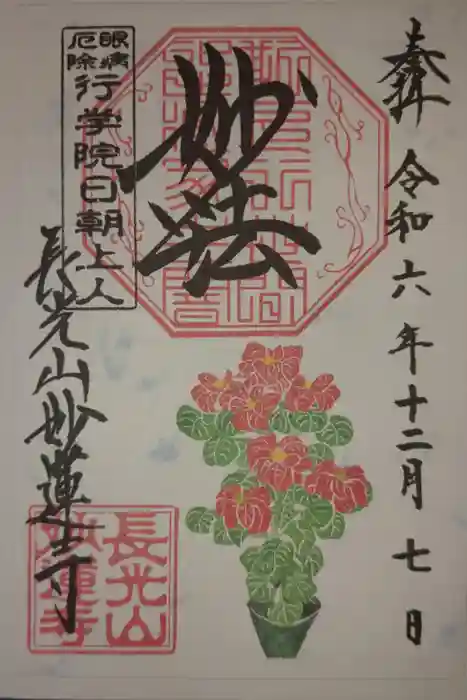 奉拝
令和六年十二月七日
妙法
眼病
厄除
行学院日朝上人
長光山妙蓮寺
長光山
妙蓮寺